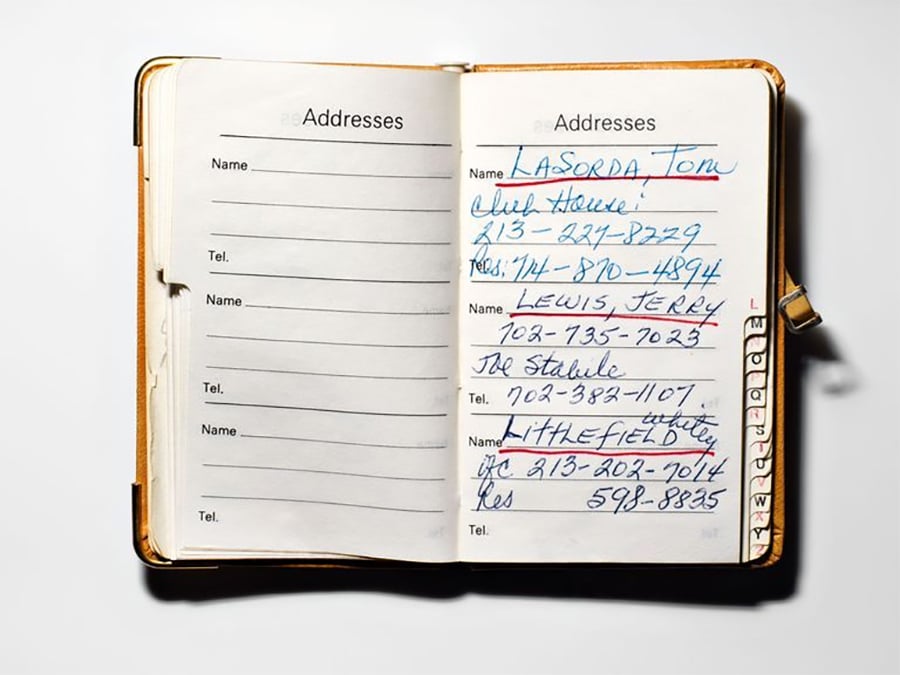 Addresses
Name
Tel.
Name
Tel.
Name
Tel.
Addresses
Name LASORDA, Tom
Club House:
213-227-8229
Tel. Res: 714-870-4894
Name LEWIS, JERRY
702-735-7023
Joe Stabile
Tel. 702-382-1107
Whitey
Name LITTLEFIELD
ofc 213-202-7014
Res 598-8835
Tel.
L
M
O
Q
S
U
W
X
Y
Z